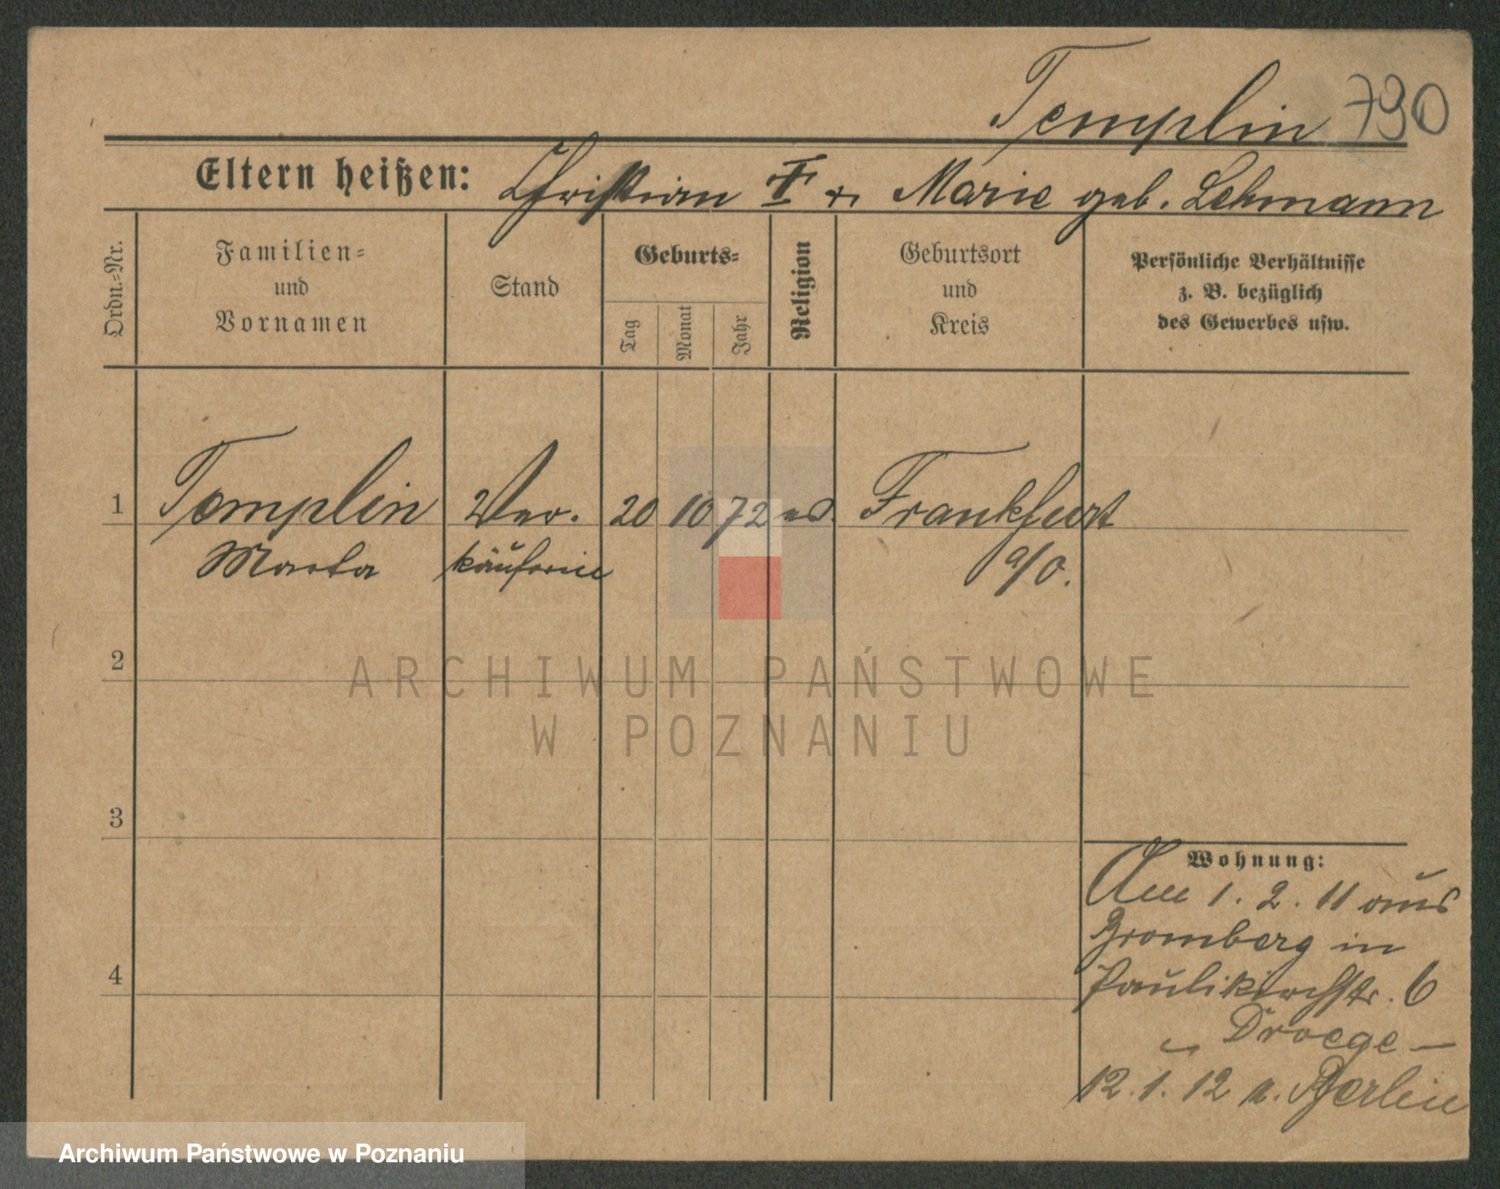 Templin 790
Eltern heißen: Christian T u. Marie geb. Lehmann
Ordn.-Nr.
Familien-
und
Vornamen
Stand
Geburts-
Tag
Monat
Jahr
Religion
Geburtsort
und
Kreis
Persönliche Verhältnisse
z. B. bezüglich
des Gewerbes usw.
1 Templin Ver. 20 10 72 ev. Frankfurt
Marta käuferin a/O.
2
ARCHIWUM PAŃSTWOWE
W POZNANIU
3
Wohnung:
Am 1. 2. 11 aus
Bromberg in
4 Paulikirchstr. 6
Droege –
12. 1. 12 n. Berlin
Archiwum Państwowe w Poznaniu